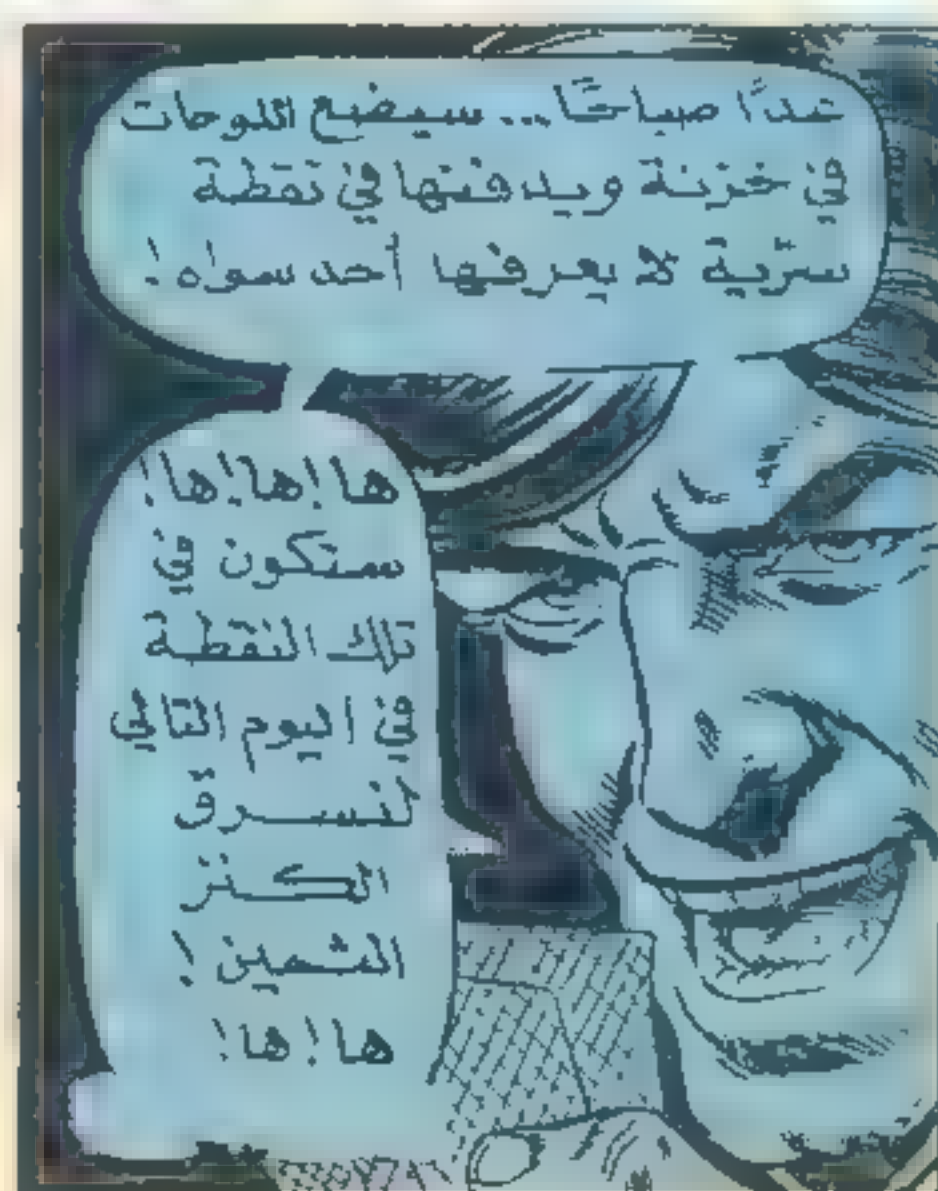 غدًا صباحًا... سيضع اللوحات
في خزنة ويدفنها في نقطة
سرّية لا يعرفها أحد سواه!
ها!ها!ها!
ستكون في
تلك النقطة
في اليوم التالي
لنسرق
الكنز
الثمين!
ها!ها!